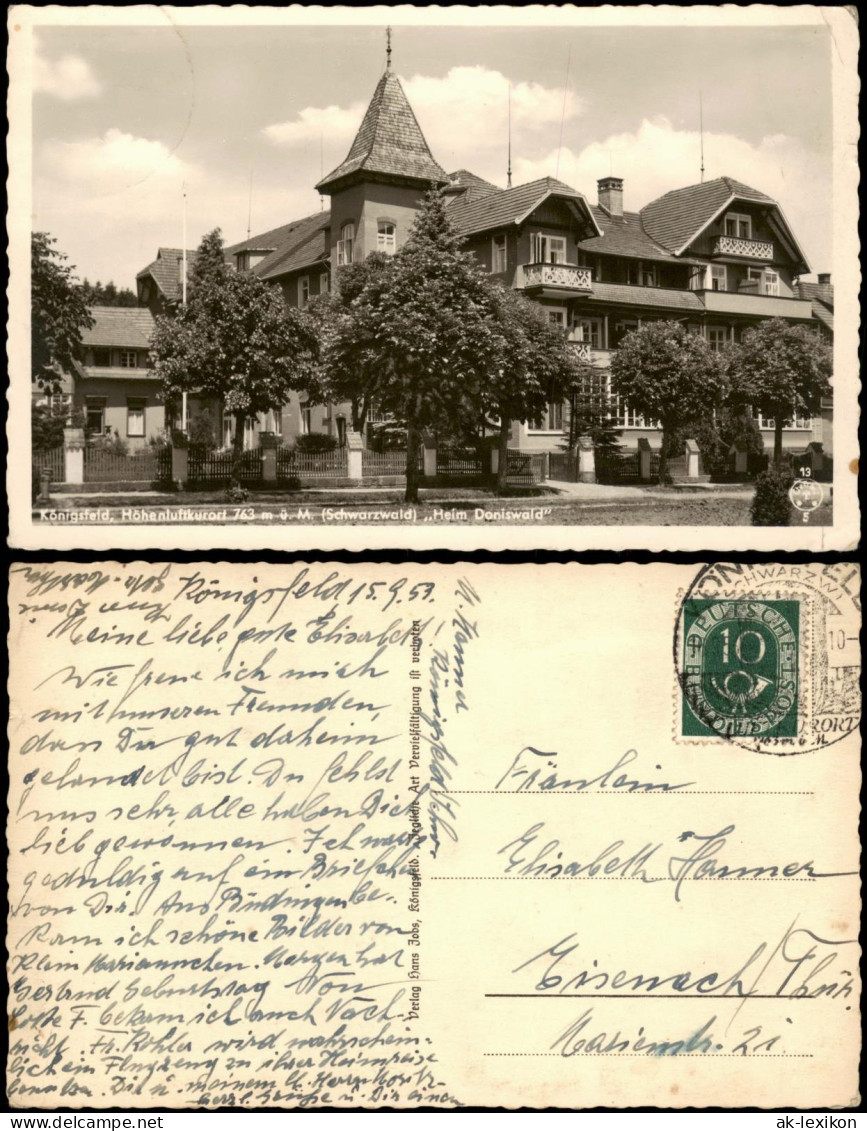 Königsfeld, Höhenluftkurort 763 m ü. M. (Schwarzwald) „Heim Doniswald"
13
5
Königsfeld 15.9.53.
Meine liebe, gute Elisabeth!
Wie freue ich mich
mit unseren Freunden,
dass Du gut daheim
gelandet bist. Du fehlst
uns sehr, alle haben Dich
lieb gewonnen. Ich warte
geduldig auf ein Briefchen
von Dir. Aus Büdingen be-
kam ich schöne Bilder von
Klein Mariannchen. Morgen hat
Gertrud Geburtstag. Von
F. bekam ich auch Nach-
richt. Fr. Köhler wird wahrschein-
lich ein Flugzeug zu ihrer Heimreise
benutzen. Dir u. meinem
herzl. Grüsse u. Dir einen
Verlag Hans Jobs, Königsfeld. Jegliche Art Vervielfältigung ist verboten
DEUTSCHE POST
10
BUNDESPOST
SCHWARZW
Fräulein
Elisabeth Hanner
Eisenach/Thür.
Marienstr. 21
ak-lexikon